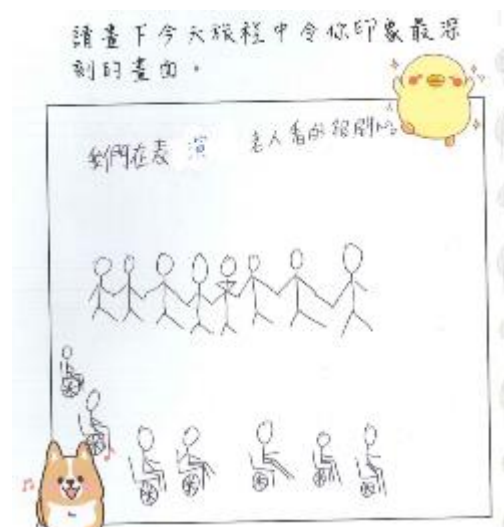 請畫下今天旅程中令你印象最深
刻的畫面。
我們在表演 老人看的很開心